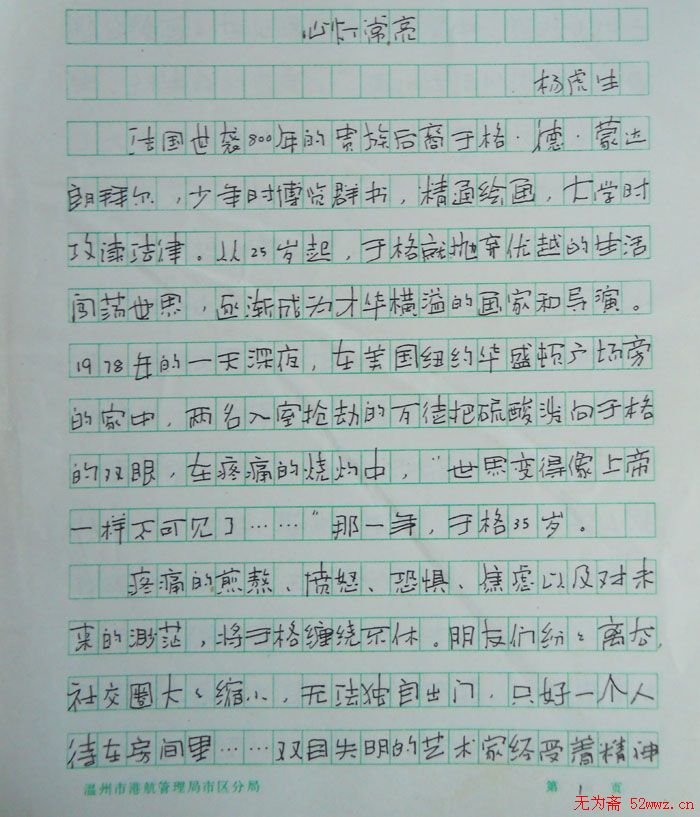 心灯常亮
杨虎生
法国世袭800年的贵族后裔于格·德·蒙达
朗拜尔，少年时博览群书，精通绘画，大学时
攻读法律。从25岁起，于格就抛弃优越的生活
闯荡世界，逐渐成为才华横溢的画家和导演。
1978年的一天深夜，在美国纽约华盛顿广场旁
的家中，两名入室抢劫的歹徒把硫酸泼向于格
的双眼，在疼痛的烧灼中，“世界变得像上帝
一样不可见了……”那一年，于格35岁。
疼痛的煎熬、愤怒、恐惧、焦虑以及对未
来的渺茫，将于格缠绕不休。朋友们纷纷离去，
社交圈大大缩小，无法独自出门，只好一个人
待在房间里……双目失明的艺术家经受着精神
温州市港航管理局市区分局 第 1 页
无为斋 52wwz.cn